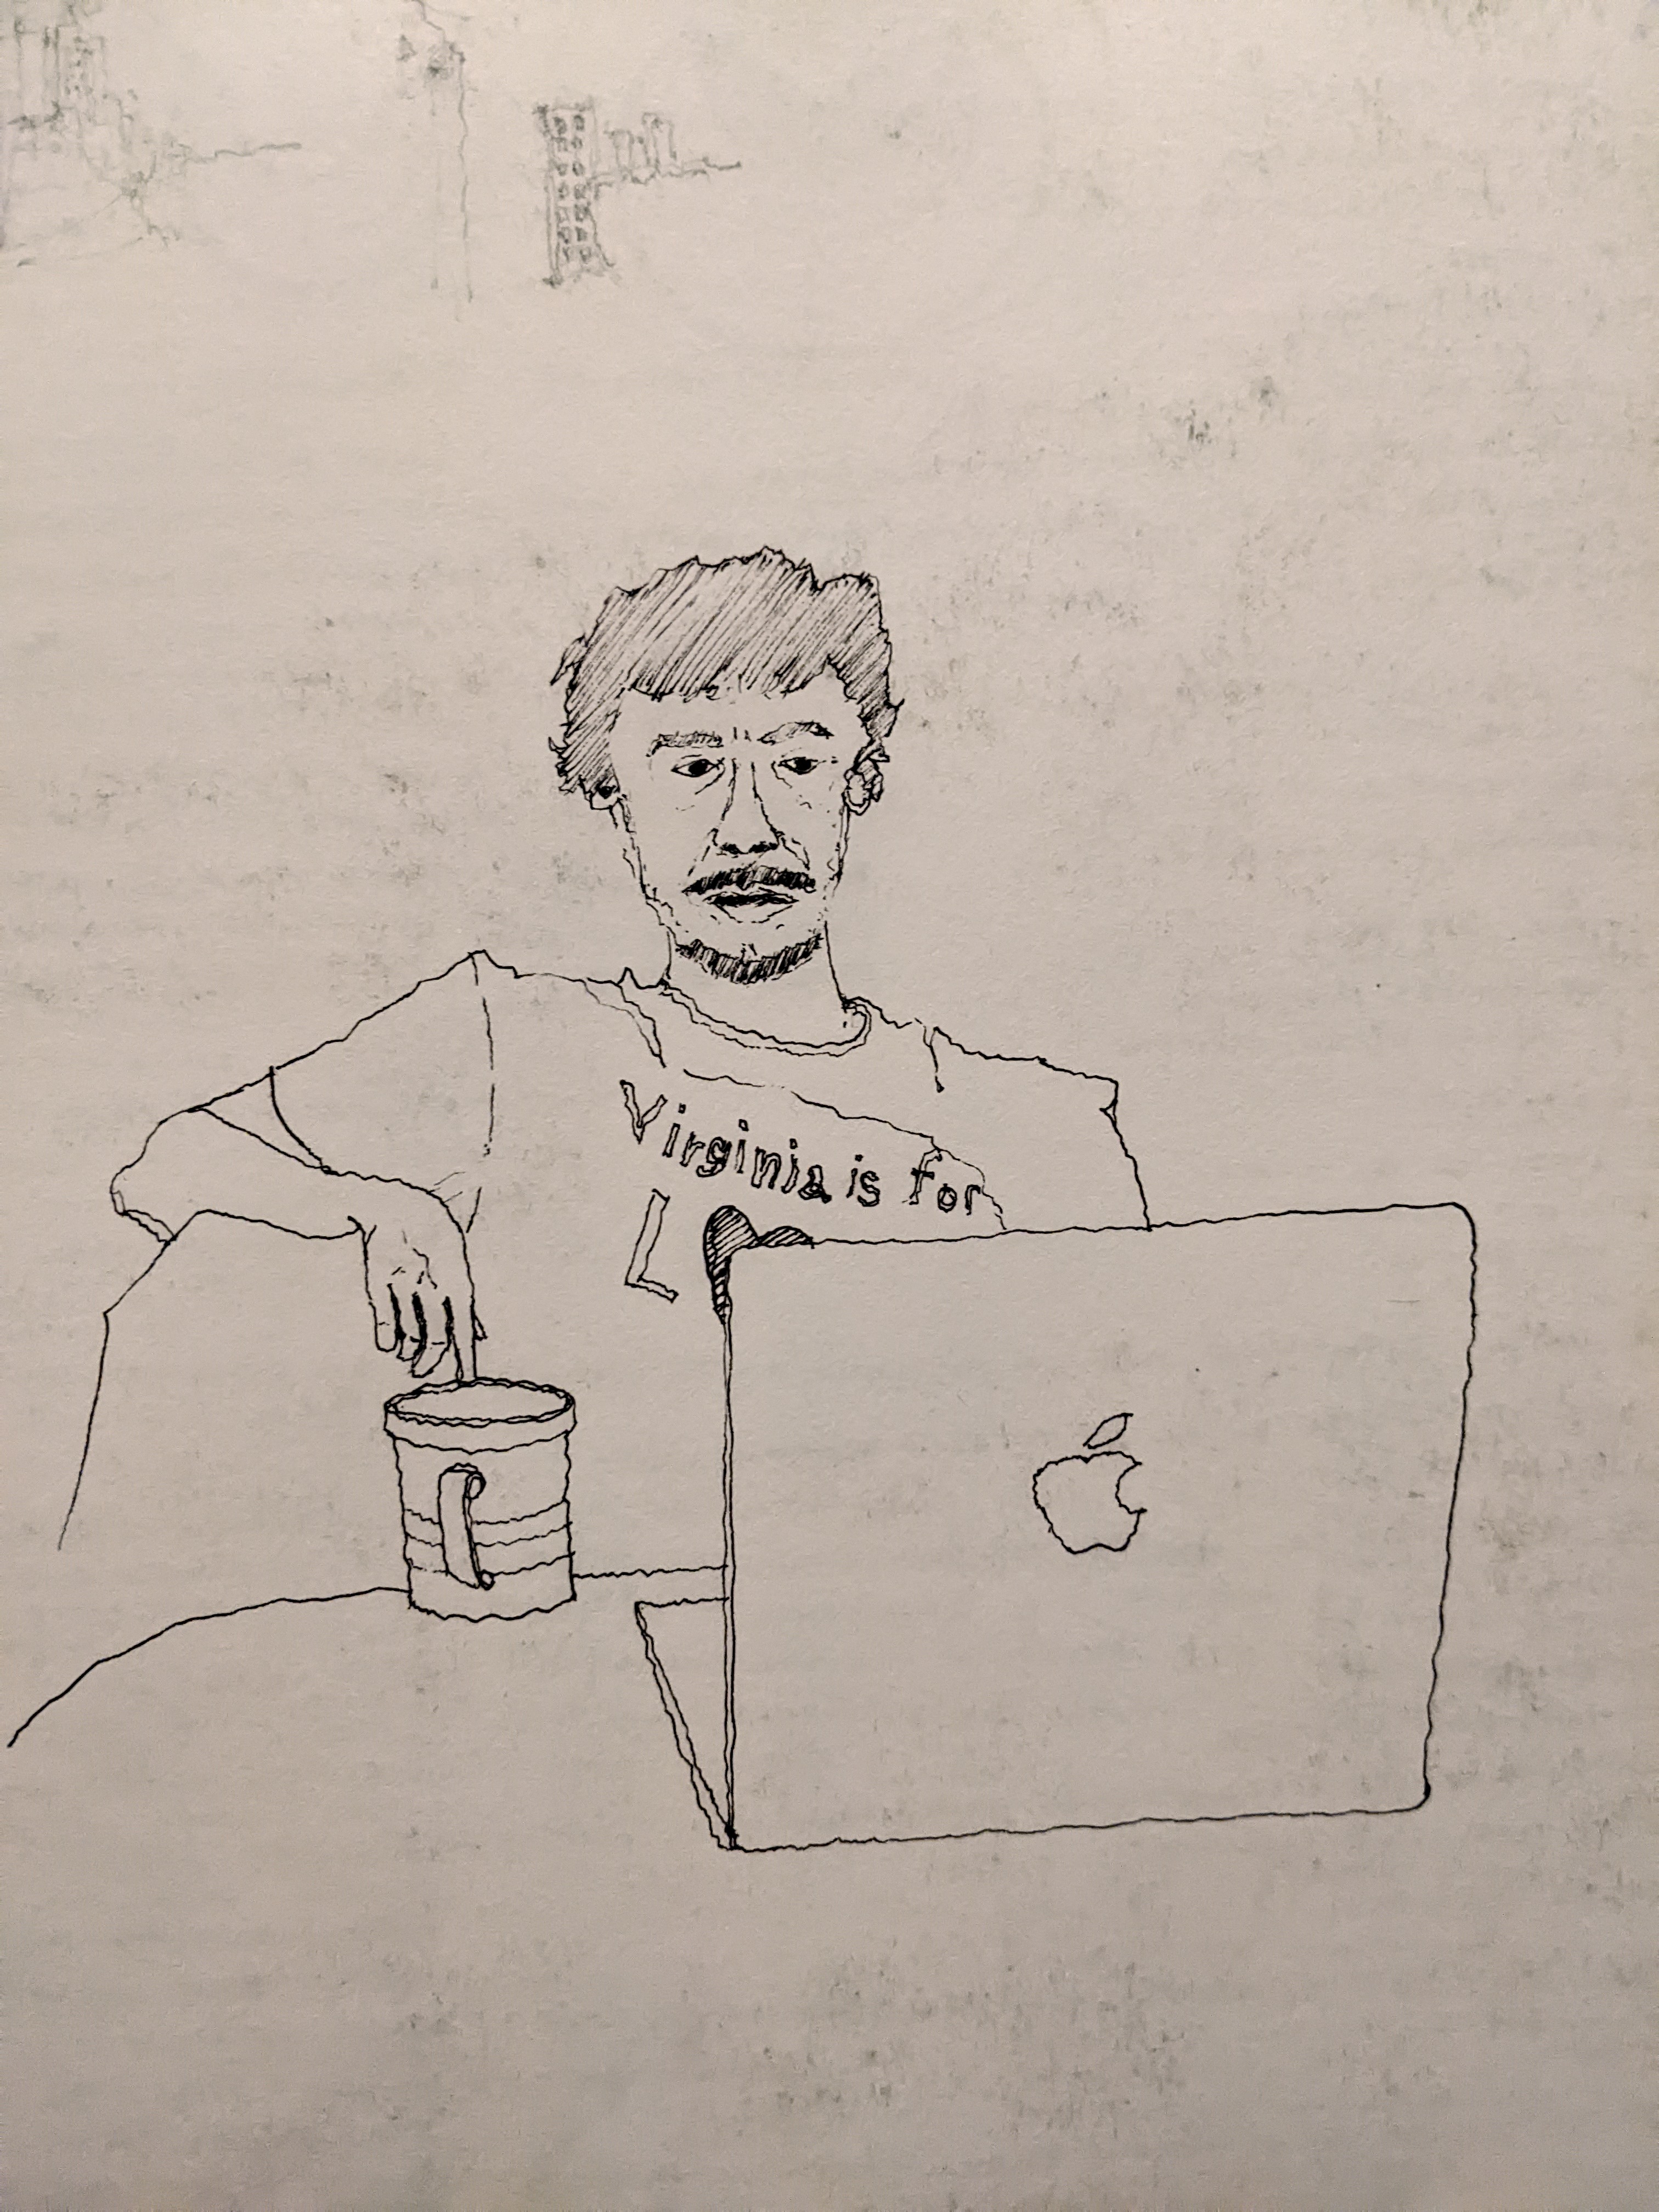 Virginia is for
L